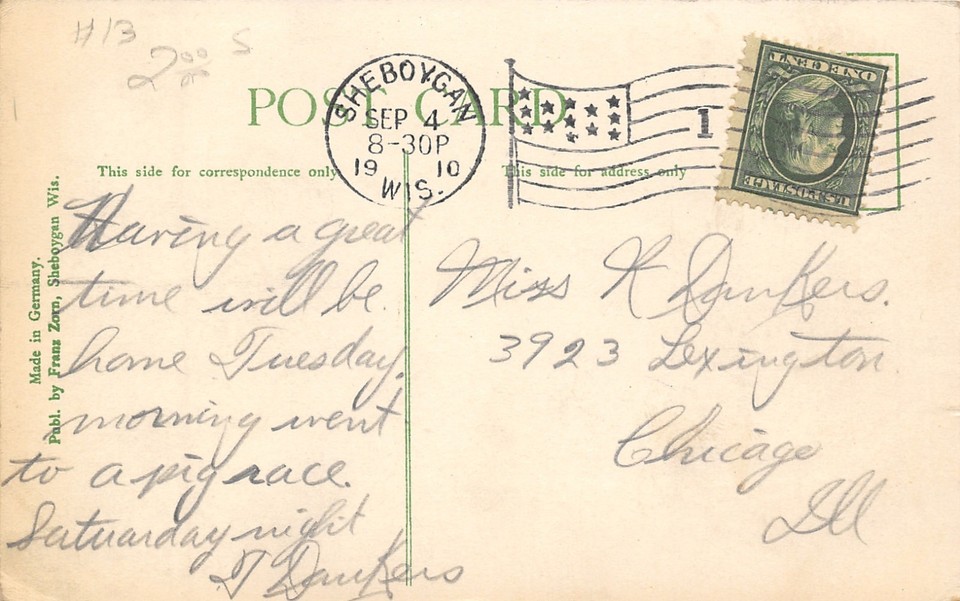 #13
2.00 S
POST CARD
SHEBOYGAN
SEP 4
8-30P
1910
WIS.
1
ONE CENT
U.S. POSTAGE
This side for correspondence only
This side for address only
Made in Germany.
Publ. by Franz Zorn, Sheboygan Wis.
Having a great
time will be
home Tuesday.
morning went
to a pig race.
Satuarday night
T Dankers
Miss K Dankers.
3923 Lexington
Chicago
Ill